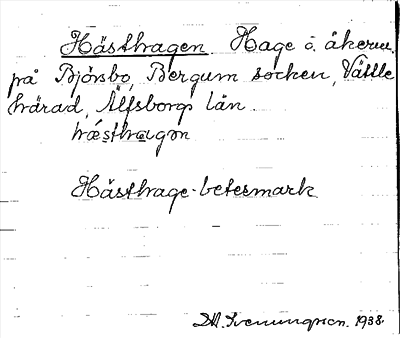 Hästhagen. Hage o. åkerru.
på Björsbo, Bergum socken, Vättle
härad, Älfsborgs län.
hæsthagon
Hästhage-betesmark
D.M. Svenungsson. 1938